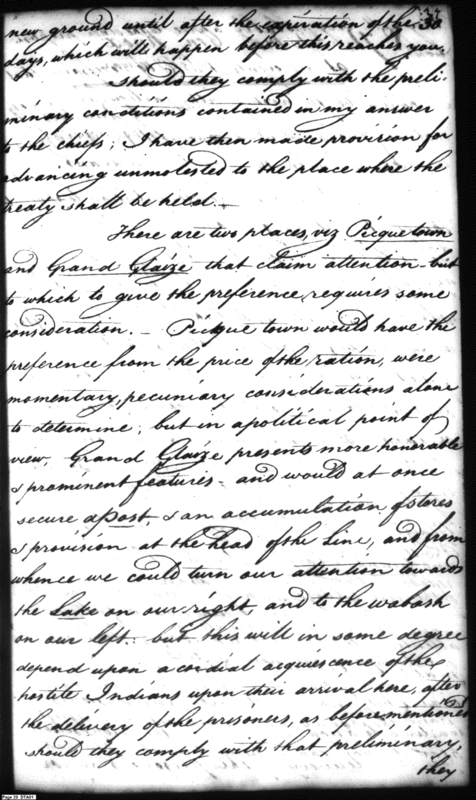 new ground until after the expiration of the 30
days, which will happen before this reaches you.
should they comply with the preli-
minary conditions contained in my answer
to the chiefs; I have then made provision for
advancing unmolested to the place where the
treaty shall be held.—
There are two places, viz Picquetown
and Grand Glaize that claim attention but
to which to give the preference, requires some
consideration.— Picque town would have the
preference from the price of the ration, were
momentary, pecuniary considerations alone
to determine; but in a political point of
view, Grand Glaize presents more honorable
& prominent features— and would at once
secure a post, & an accumulation of stores
& provision at the head of the Line, and from
whence we could turn our attention towards
the Lake on our right, and to the wabash
on our left— but this will in some degree
depend upon a cordial acquiescence of the
hostile Indians upon their arrival here, after
the delivery of the prisoners, as before mentioned
should they comply with that preliminary,
they